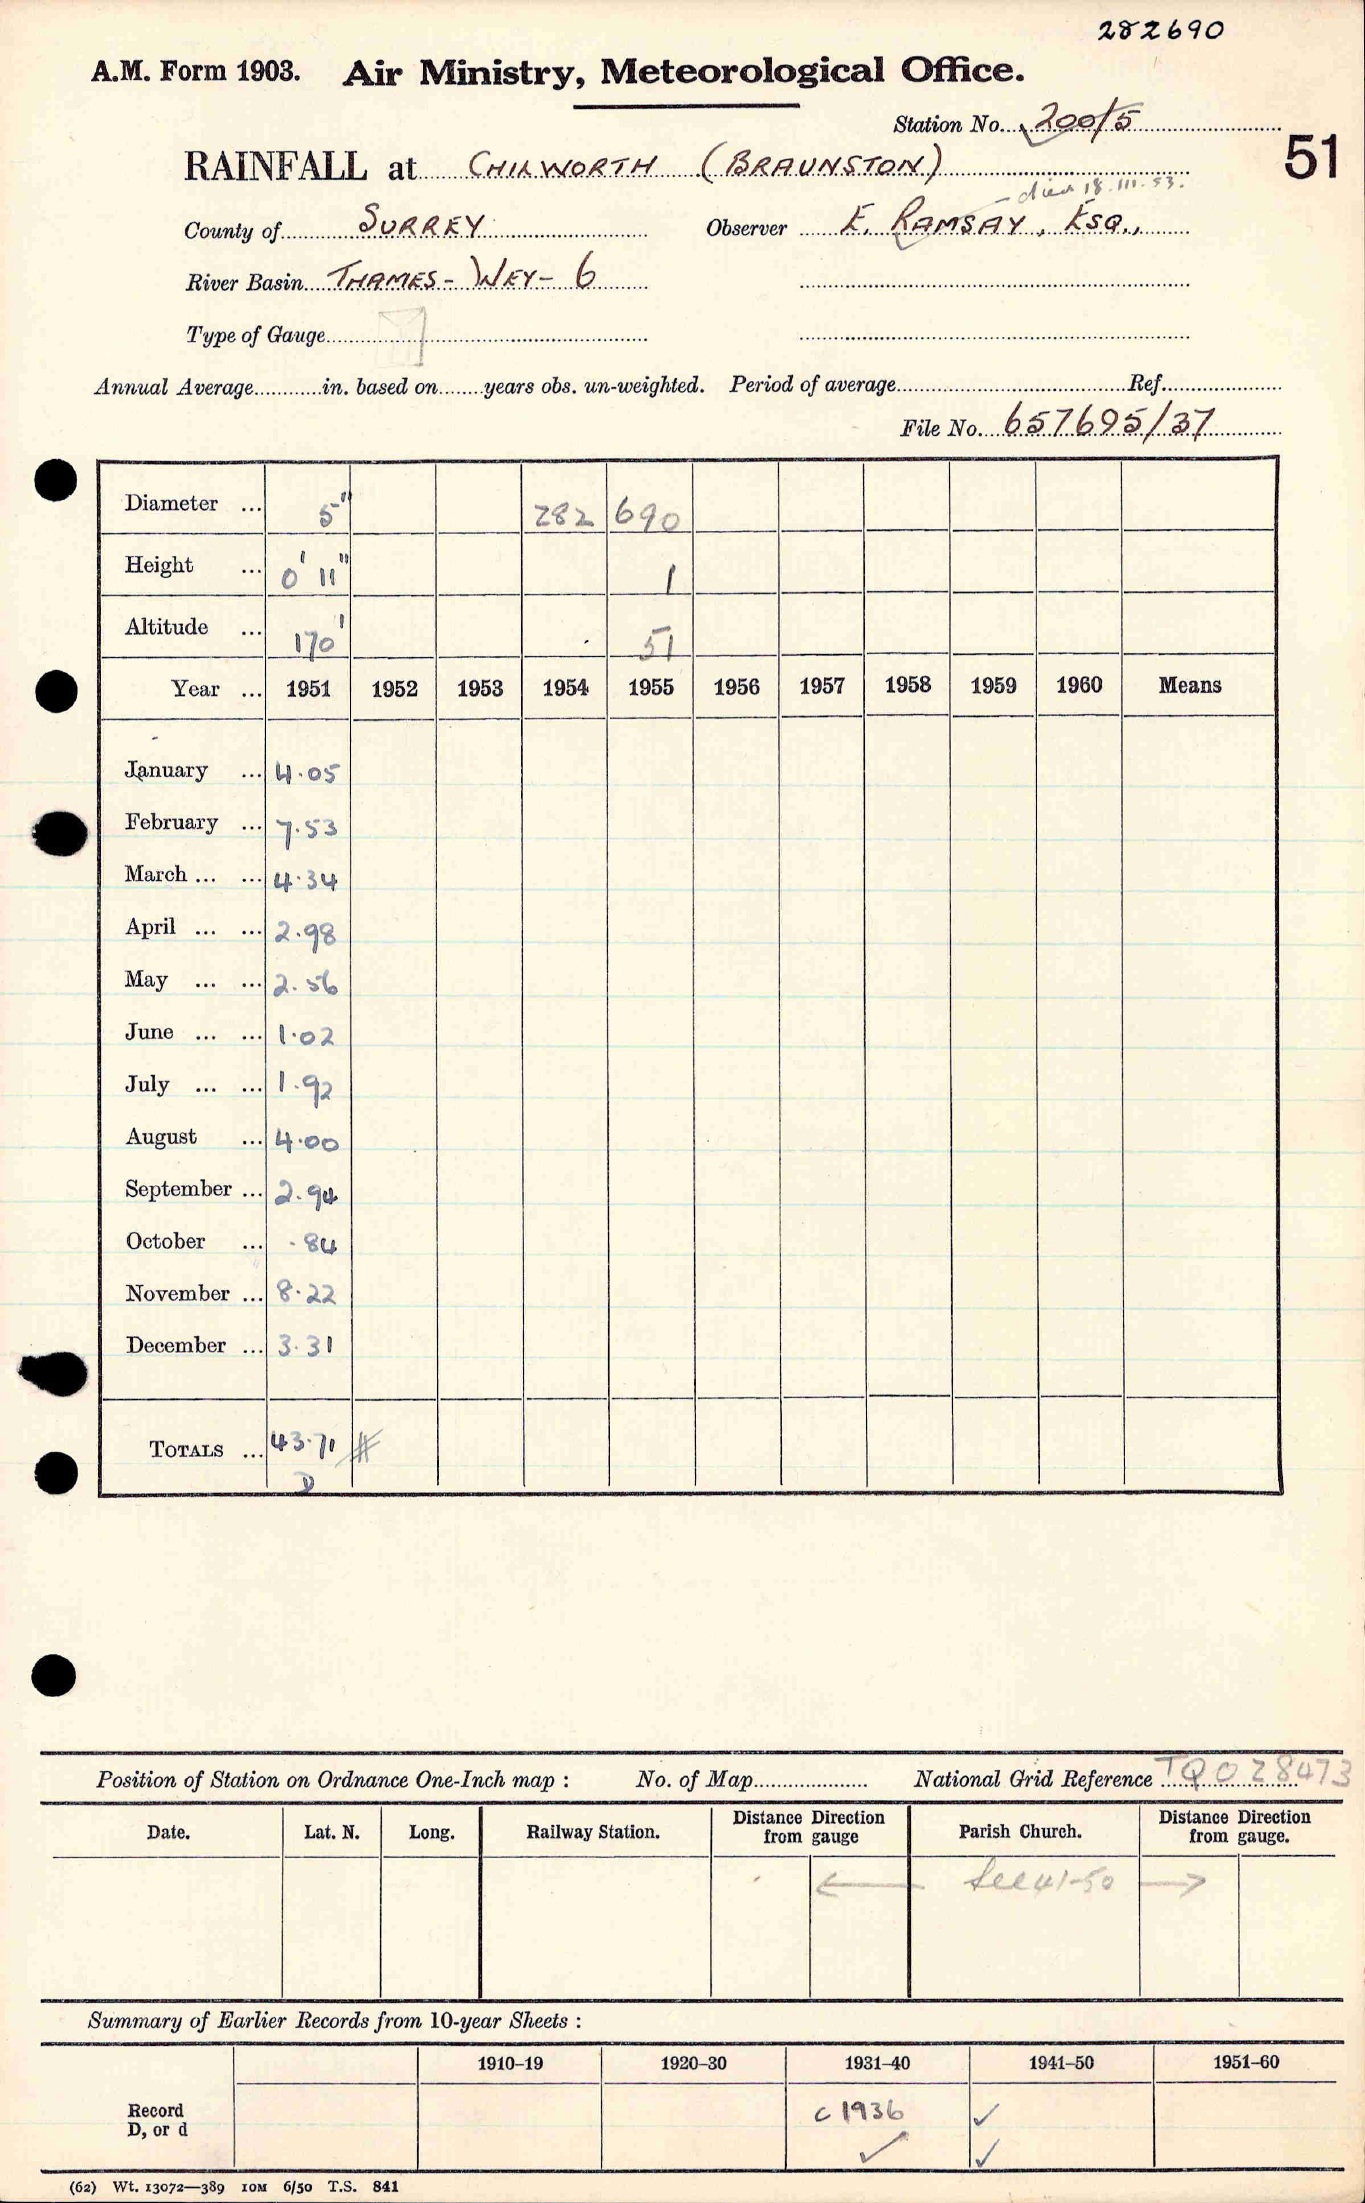 282690
A.M. Form 1903. Air Ministry, Meteorological Office.
Station No. 200/5
51
RAINFALL at CHILWORTH (BRAUNSTON)
died 18.III.53.
County of SURREY Observer E. RAMSAY, ESQ.,
River Basin THAMES - WEY - 6
Type of Gauge
Annual Average in. based on years obs. un-weighted. Period of average Ref.
File No. 657695/37
Diameter ... 5" 282 690
Height ... 0' 11" 1
Altitude ... 170' 51
Year ... 1951 1952 1953 1954 1955 1956 1957 1958 1959 1960 Means
January ... 4.05
February ... 7.53
March ... ... 4.34
April ... ... 2.98
May ... ... 2.56
June ... ... 1.02
July ... ... 1.92
August ... 4.00
September ... 2.94
October ... .84
November ... 8.22
December ... 3.31
TOTALS ... 43.71 #
D
Position of Station on Ordnance One-Inch map : No. of Map National Grid Reference TQ 028473
Date. Lat. N. Long. Railway Station. Distance Direction from gauge Parish Church. Distance Direction from gauge.
← See 41-50 →
Summary of Earlier Records from 10-year Sheets :
1910-19 1920-30 1931-40 1941-50 1951-60
Record c 1936 ✓
D, or d ✓ ✓
(62) Wt. 13072—389 10M 6/50 T.S. 841